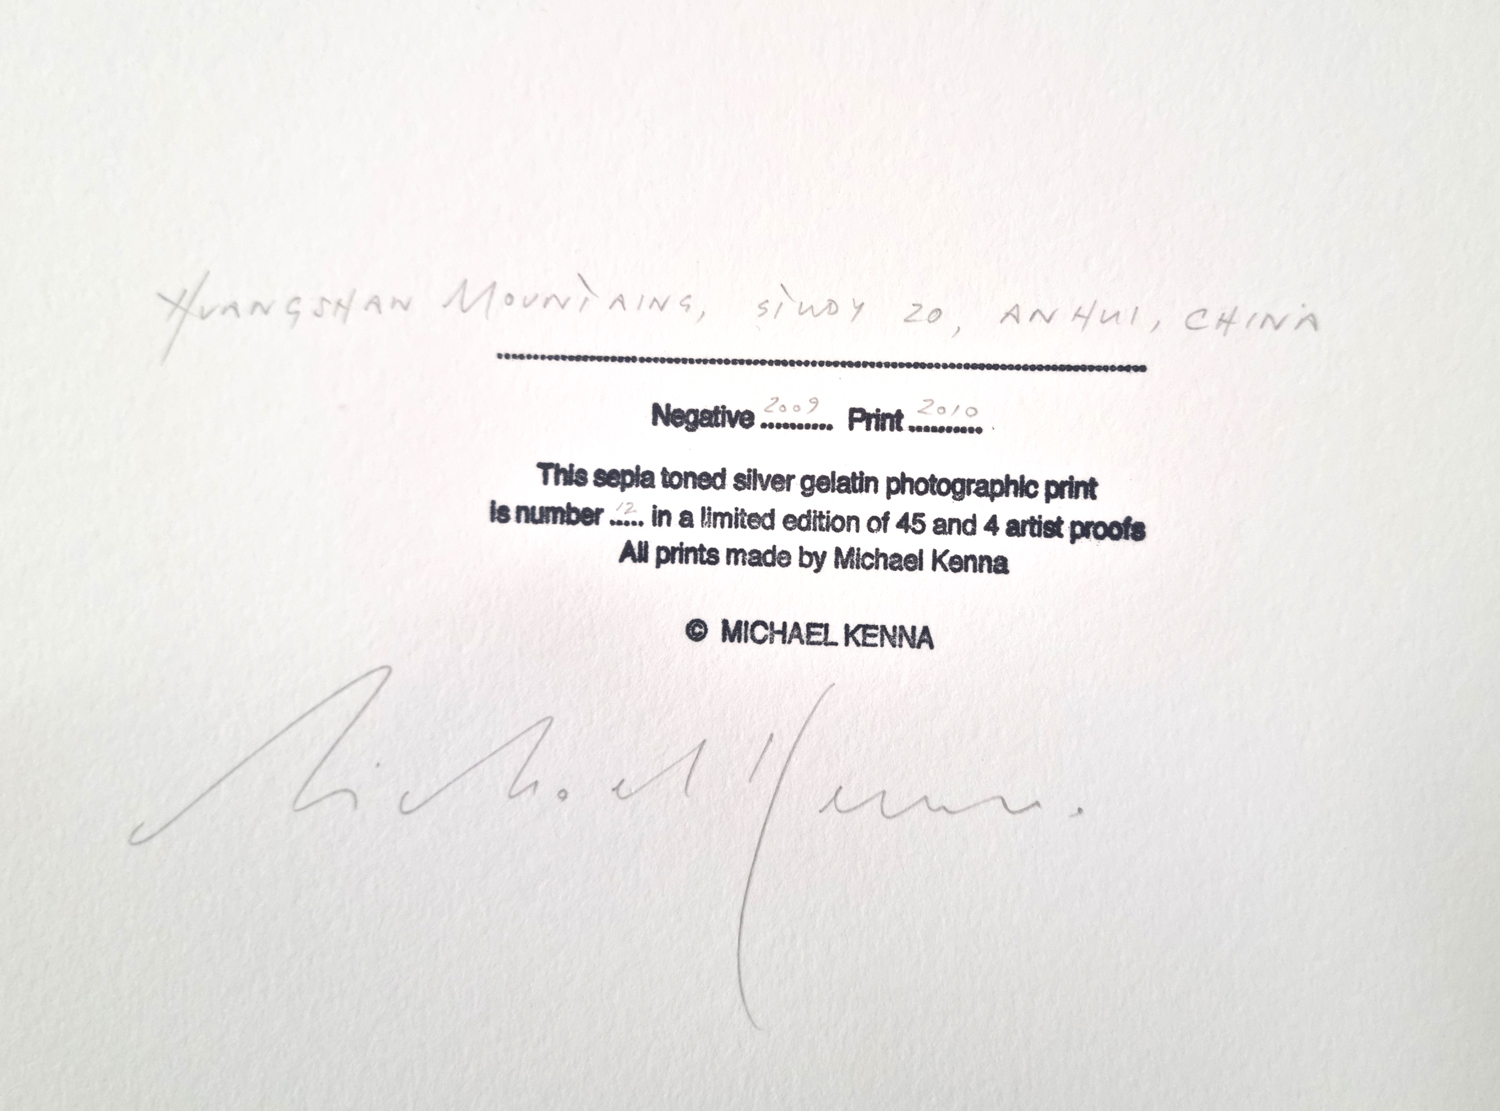 HUANGSHAN MOUNTAINS, STUDY 20, ANHUI, CHINA
Negative 2009 Print 2010
This sepia toned silver gelatin photographic print
is number 12 in a limited edition of 45 and 4 artist proofs
All prints made by Michael Kenna
© MICHAEL KENNA
Michael Kenna